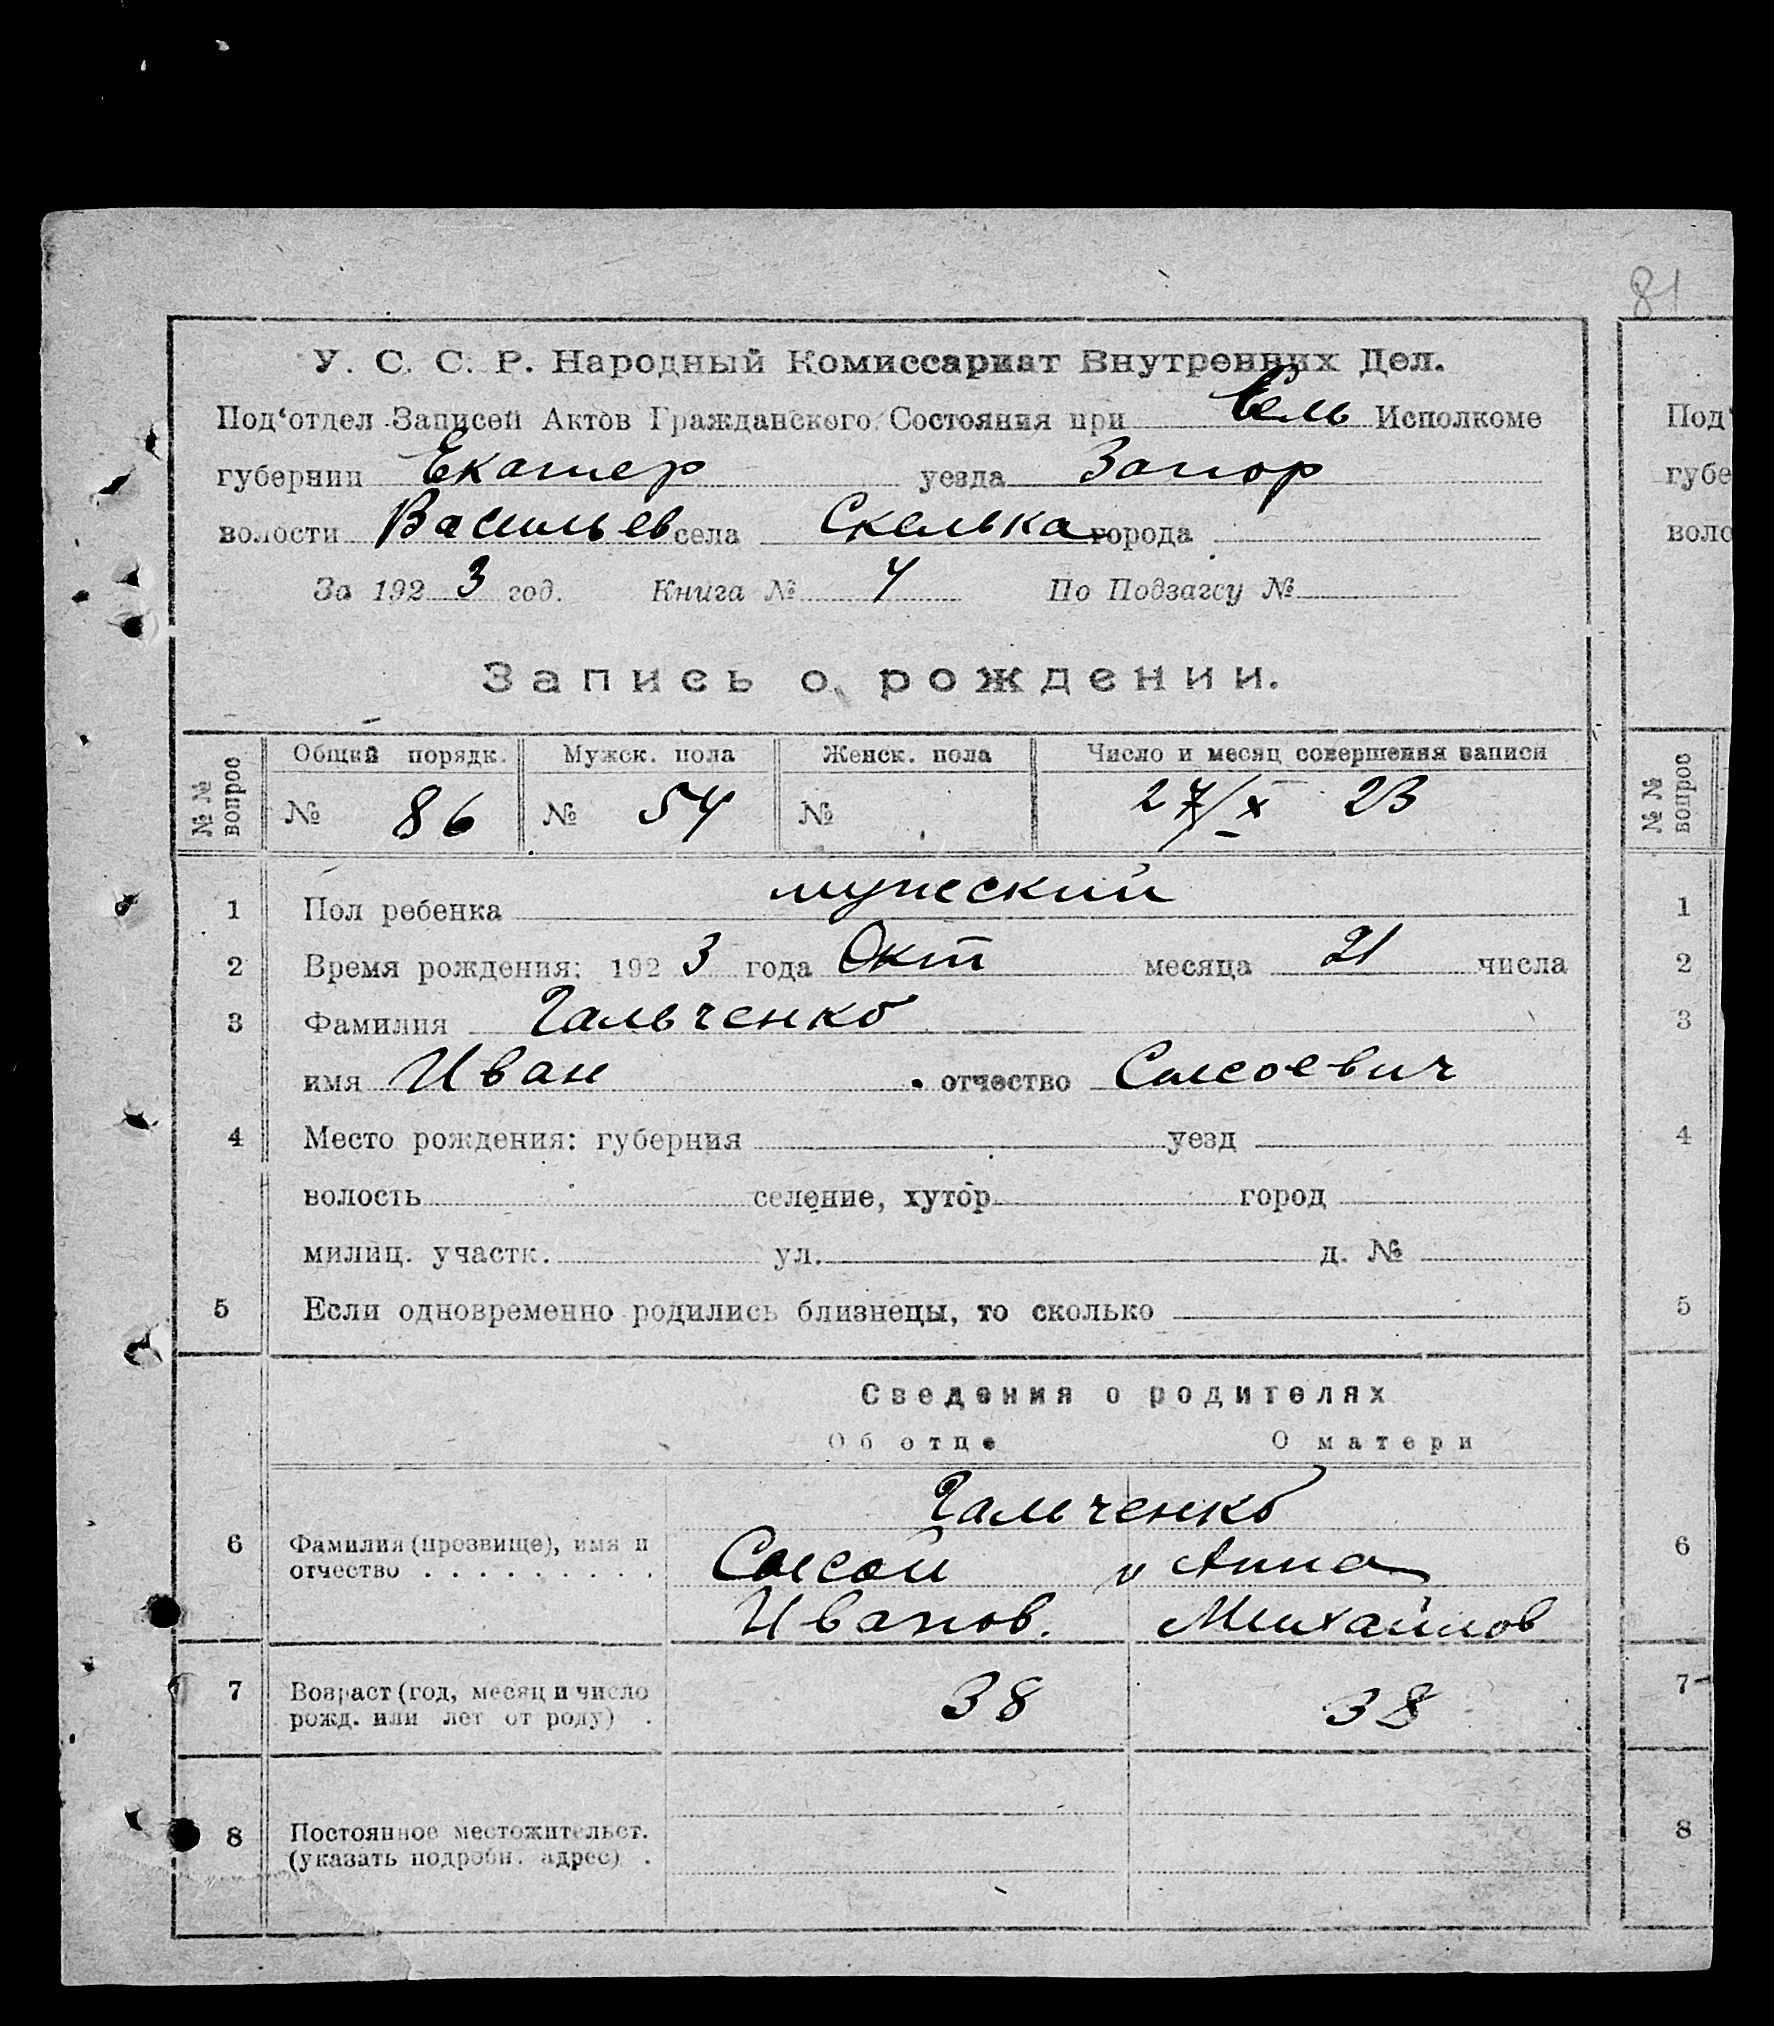 81
У. С. С. Р. Народный Комиссариат Внутренних Дел.
Под‘отдел Записей Актов Гражданского Состояния при Сель Исполкоме
губернии Екатер уезда Запор
волости Васильев села Скелька города
За 1923 год. Книга № 4 По Подзагсу №
Запись о рождении.
№№ вопрос Общий порядк. Мужск. пола Женск. пола Число и месяц совершения записи
№ 86 № 54 № 27/X 23
1 Пол ребенка мужеский
2 Время рождения: 1923 года Окт месяца 21 числа
3 Фамилия Гальченко
имя Иван отчество Сысоевич
4 Место рождения: губерния уезд
волость селение, хутор город
милиц. участк. ул. д. №
5 Если одновременно родились близнецы, то сколько
Сведения о родителях
Об отце О матери
Гальченко
6 Фамилия (прозвище), имя и
отчество . . . . . . . . . . Сысой и Анна
Иванов. Михайлов
7 Возраст (год, месяц и число
рожд. или лет от роду) . 38 38
8 Постоянное местожительст.
(указать подробн. адрес) .
Под‘
губе
воло
№№ вопрос
1
2
3
4
5
6
7
8